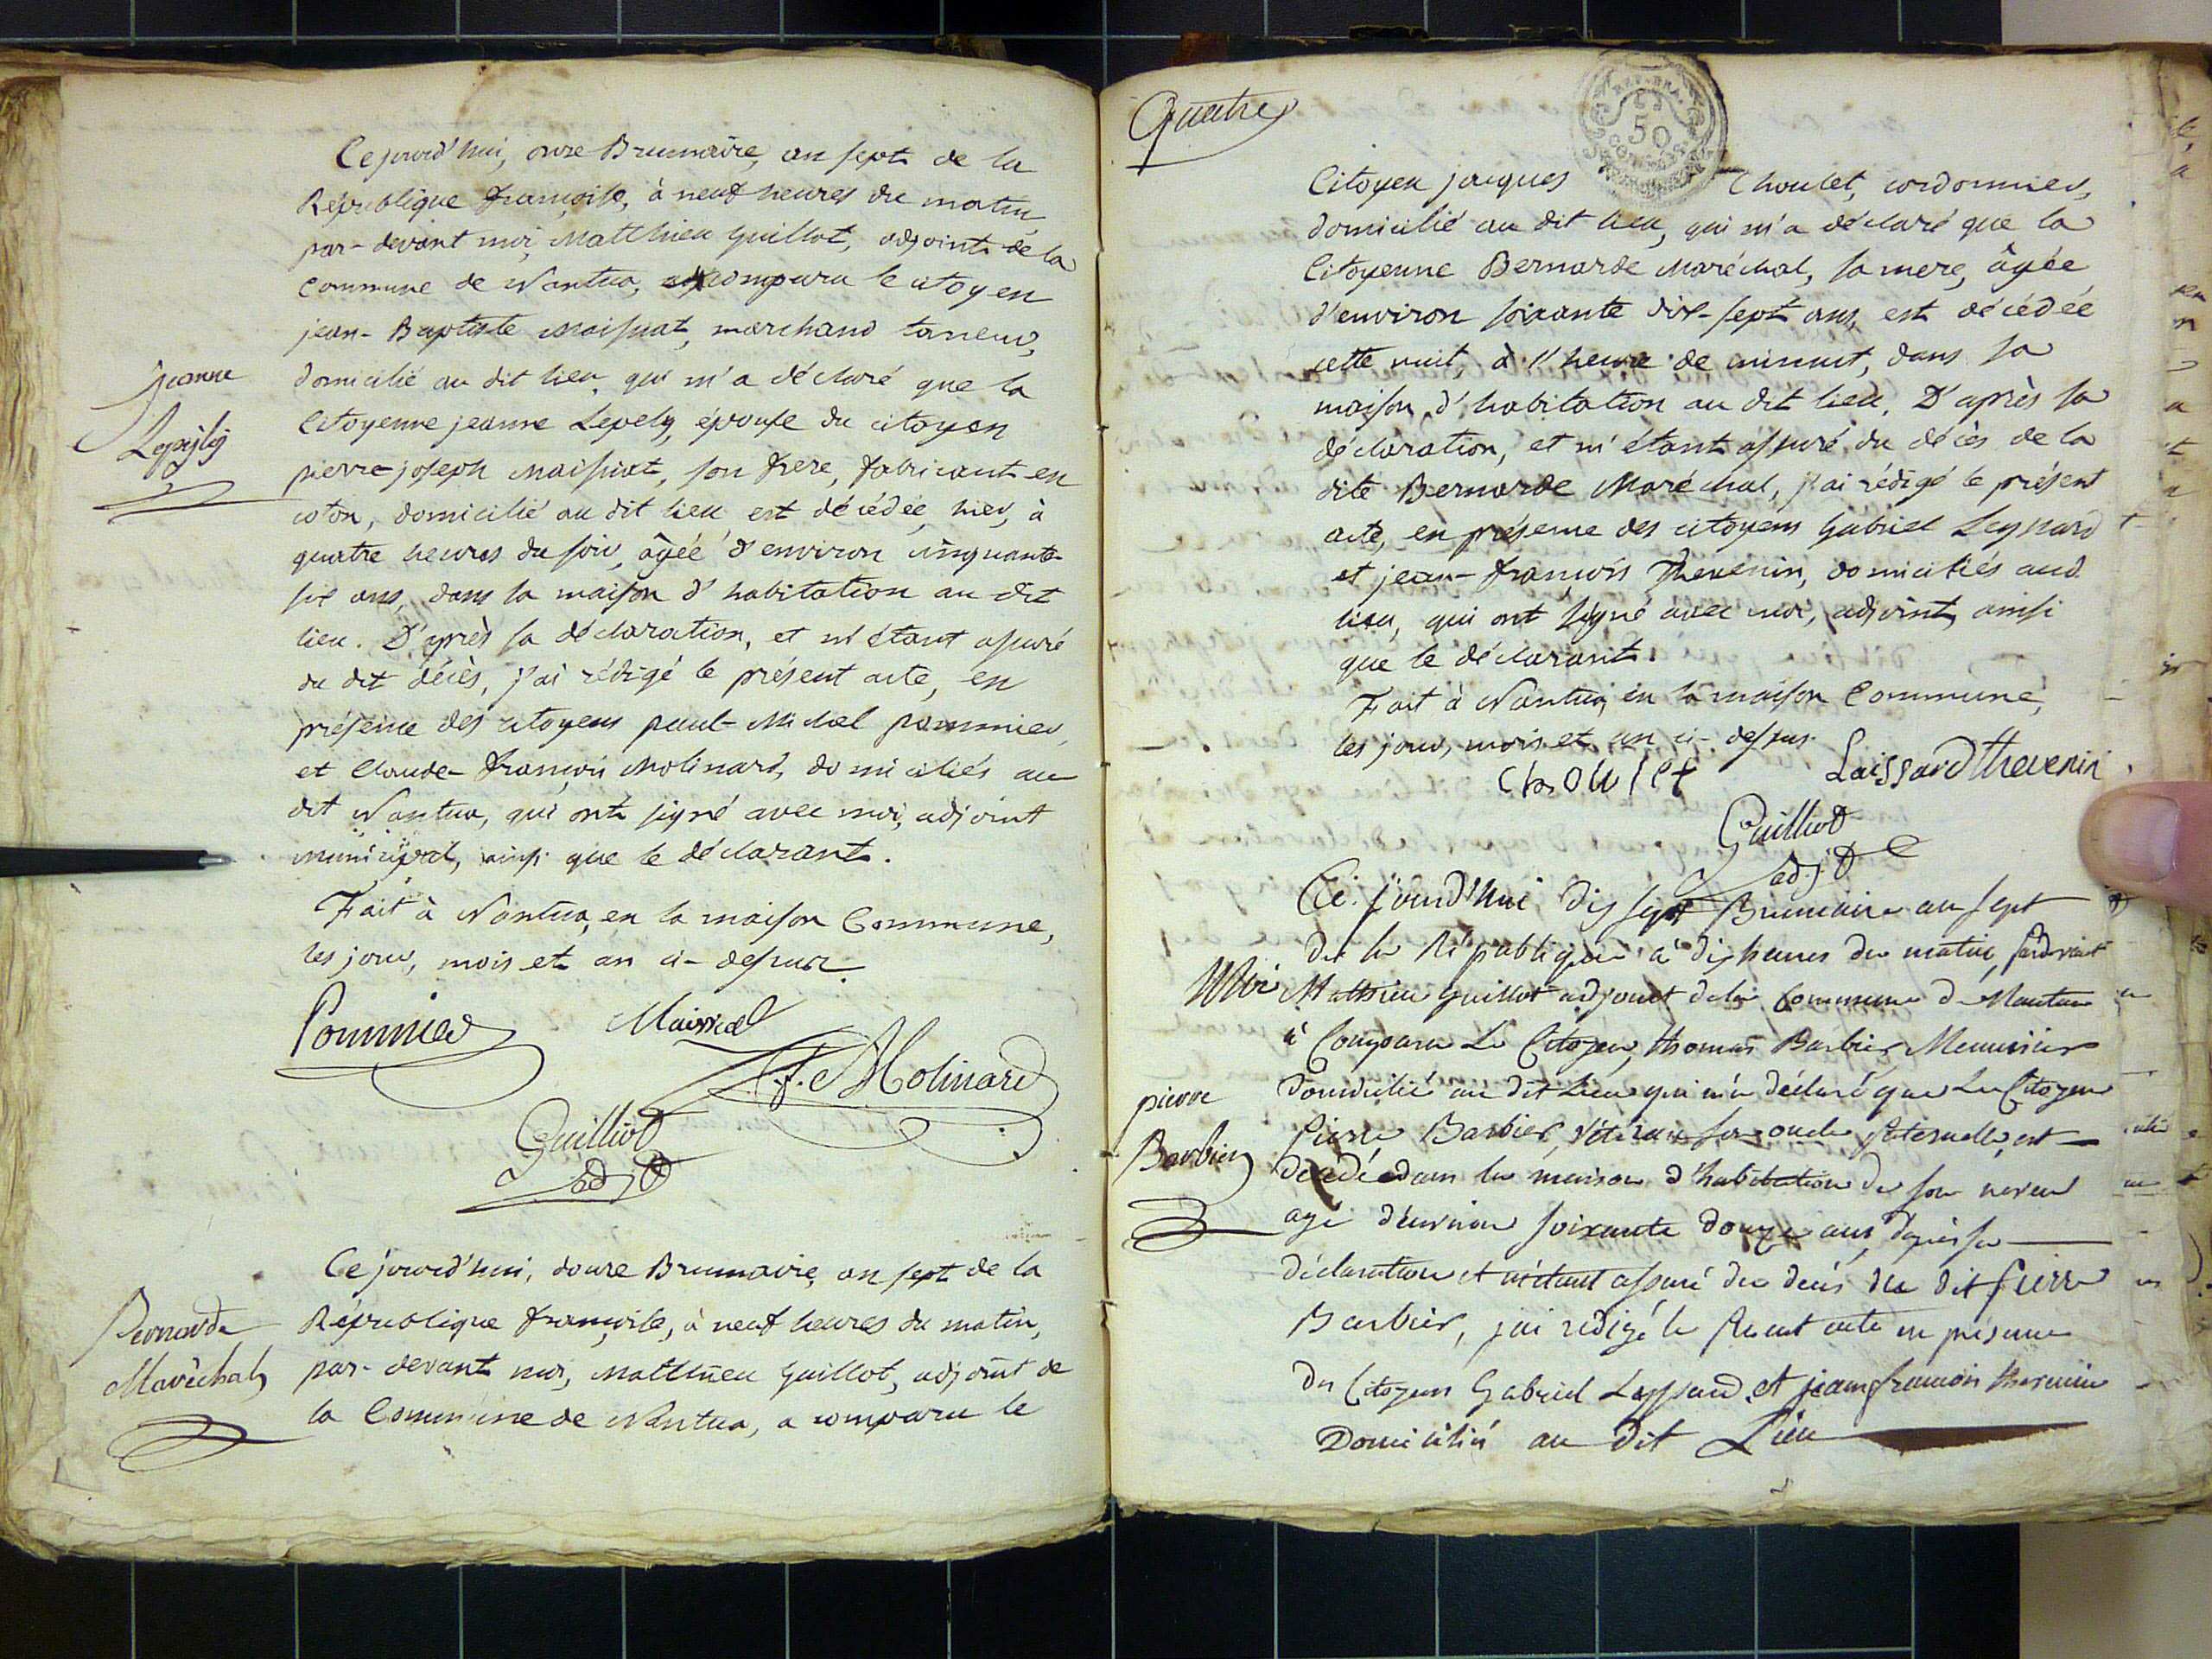 Cejourd'hui, onze Brumaire, an sept de la
République françoise, à neuf heures du matin,
par-devant moi, Matthieu Guillot, adjoint de la
Commune de Nantua, a comparu le citoyen
jean-Baptiste Maissiat, marchand tanneur,
domicilié au dit lieu, qui m'a déclaré que la
Jeanne
citoyenne jeanne Lepely, épouse du citoyen
pierre-joseph Maissiat, son frere, fabricant en
coton, domicilié au dit lieu, est décédée, hier, à
quatre heures du soir, âgée d'environ cinquante-
six ans, dans sa maison d'habitation au dit
lieu. D'après sa déclaration, et m'étant assuré
du dit décès, j'ai rédigé le présent acte, en
présence des citoyens paul-Michel pommier,
et Claude-françois Molinard, domiciliés au
dit Nantua, qui ont signé avec moi, adjoint
municipal, ainsi que le déclarant.
Fait à Nantua, en la maison Commune,
les jour, mois et an ci-dessus.
Pommier Maissiat
C.f. Molinard
Guilliot
adjt
Cejourd'hui, douze Brumaire, an sept de la
Bernarde
Maréchal
République françoise, à neuf heures du matin,
par-devant moi, Matthieu Guillot, adjoint de
la Commune de Nantua, a comparu le
Quatre
REP. FRA.
50
Citoyen jacques Choulet, cordonnier,
domicilié au dit lieu, qui m'a déclaré que la
Citoyenne Bernarde Maréchal, sa mere, âgée
d'environ soixante dix-sept ans, est décédée
cette nuit, à l'heure de minuit, dans sa
maison d'habitation au dit lieu. D'après sa
déclaration, et m'étant assuré du décès de la
dite Bernarde Maréchal, j'ai rédigé le présent
acte, en présence des citoyens Gabriel Leyssard
et jean-françois Thevenin, domiciliés aud.
lieu, qui ont signé avec moi, adjoint, ainsi
que le déclarant.
Fait à Nantua, en la maison Commune,
les jour, mois et an ci-dessus.
Choulet Laissard thevenin
Guilliot
adjt
Ce jourd'hui dix sept Brumaire an sept
de la République à dix heures du matin, pardevant
Moi Mathieu Guillot adjoint de la Commune de Nantua
à Comparu Le Citoyen thomas Barbier Menuisier
domicilié au dit Lieu qui m'a déclaré que Le Citoyen
pierre
Barbier
Pierre Barbier, vétéran son oncle paternelle, est
decédé dans la maison d'habitation de son neveu
agé d'environ soixante douze ans, d'après sa
déclaration et m'étant assuré du decés du dit pierre
Barbier, j'ai rédigé le present acte en présence
des Citoyens Gabriel Leyssard et jean françois thevenin
Domiciliés au dit Lieu